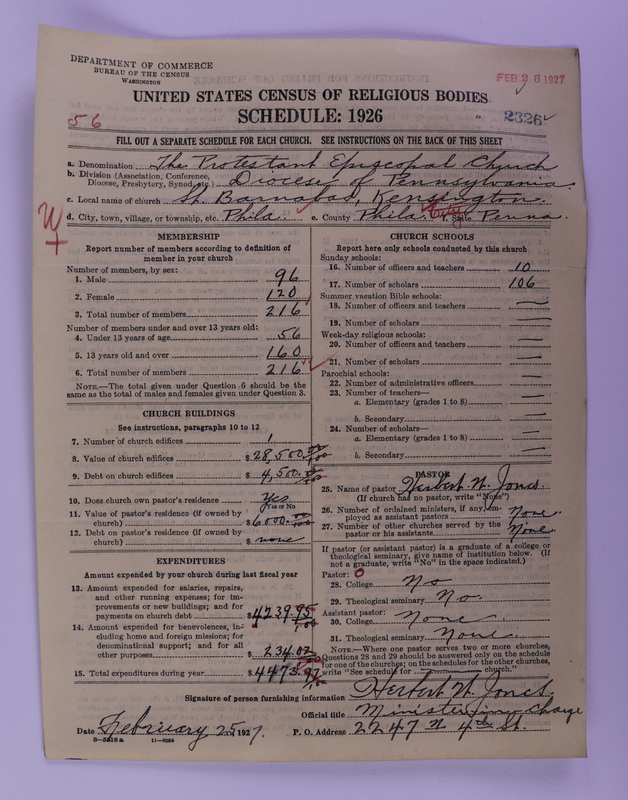 DEPARTMENT OF COMMERCE
BUREAU OF THE CENSUS
WASHINGTON
FEB 26 1927
UNITED STATES CENSUS OF RELIGIOUS BODIES
SCHEDULE: 1926
56
2326
FILL OUT A SEPARATE SCHEDULE FOR EACH CHURCH. SEE INSTRUCTIONS ON THE BACK OF THIS SHEET
a. Denomination The Protestant Episcopal Church
b. Division (Association, Conference,
Diocese, Presbytery, Synod, etc.) Diocese of Pennsylvania.
c. Local name of church St. Barnabas, Kensington.
d. City, town, village, or township, etc. Phila. e. County Phila. City f. State Penna.
MEMBERSHIP
Report number of members according to definition of
member in your church
Number of members, by sex:
1. Male 96
2. Female 120
3. Total number of members 216
Number of members under and over 13 years old:
4. Under 13 years of age 56
5. 13 years old and over 160
6. Total number of members 216
NOTE.—The total given under Question 6 should be
the same as the total of males and females given under Question 3.
CHURCH BUILDINGS
See instructions, paragraphs 10 to 12
7. Number of church edifices 1
8. Value of church edifices $28,500.00/100
9. Debt on church edifices $4,500.00/100
10. Does church own pastor's residence Yes
Yes or No
11. Value of pastor's residence (if owned by
church) $6000.00/100
12. Debt on pastor's residence (if owned by
church) $ none
EXPENDITURES
Amount expended by your church during last fiscal year
13. Amount expended for salaries, repairs,
and other running expenses; for im-
provements or new buildings; and for
payments on church debt $4239.95/100
14. Amount expended for benevolences, in-
cluding home and foreign missions; for
denominational support; and for all
other purposes $234.02/100
15. Total expenditures during year $4473.97/100
CHURCH SCHOOLS
Report here only schools conducted by this church
Sunday schools:
16. Number of officers and teachers 10
17. Number of scholars 106
Summer vacation Bible schools:
18. Number of officers and teachers —
19. Number of scholars —
Week-day religious schools:
20. Number of officers and teachers —
21. Number of scholars —
Parochial schools:
22. Number of administrative officers —
23. Number of teachers—
a. Elementary (grades 1 to 8) —
b. Secondary —
24. Number of scholars—
a. Elementary (grades 1 to 8) —
b. Secondary —
PASTOR
25. Name of pastor Herbert W. Jones
(If church has no pastor, write "None")
26. Number of ordained ministers, if any, em-
ployed as assistant pastors None.
27. Number of other churches served by the
pastor or his assistants None.
If pastor (or assistant pastor) is a graduate of a college or
theological seminary, give name of institution below. (If
not a graduate, write "No" in the space indicated.)
Pastor:
28. College No
29. Theological seminary No.
Assistant pastor:
30. College None.
31. Theological seminary None.
NOTE.—Where one pastor serves two or more churches,
Questions 28 and 29 should be answered only on the schedule
for one of the churches; on the schedules for the other churches,
write "See schedule for church."
Signature of person furnishing information Herbert W. Jones.
Official title Minister in charge
Date February 25, 1927. P. O. Address 2247 N 4th St.
8—5818 a 11—9264